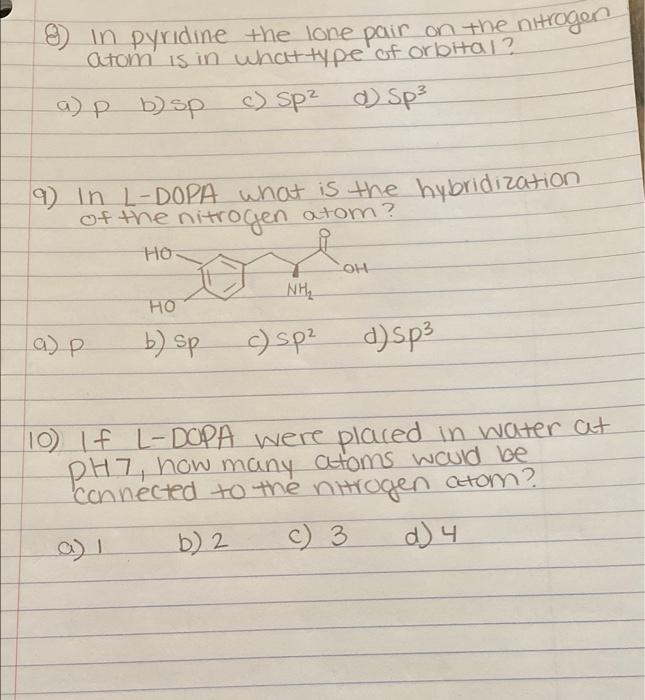 8) In pyridine the lone pair on the nitrogen
atom is in what type of orbital?
a) p b) sp c) sp² d) sp³
9) In L-DOPA what is the hybridization
of the nitrogen atom?
O
HO
OH
NH₂
HO
a) p b) sp c) sp² d) sp³
10) If L-DOPA were placed in water at
pH7, how many atoms would be
connected to the nitrogen atom?
a) 1 b) 2 c) 3 d) 4